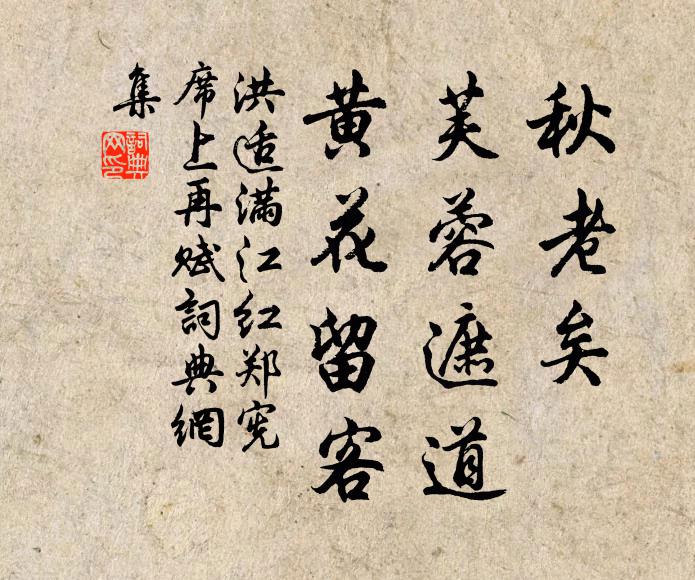 秋老矣
芙蓉遮道
黄花留客
洪适满江红郑宪
席上再赋詞典網
集
詞典
网印